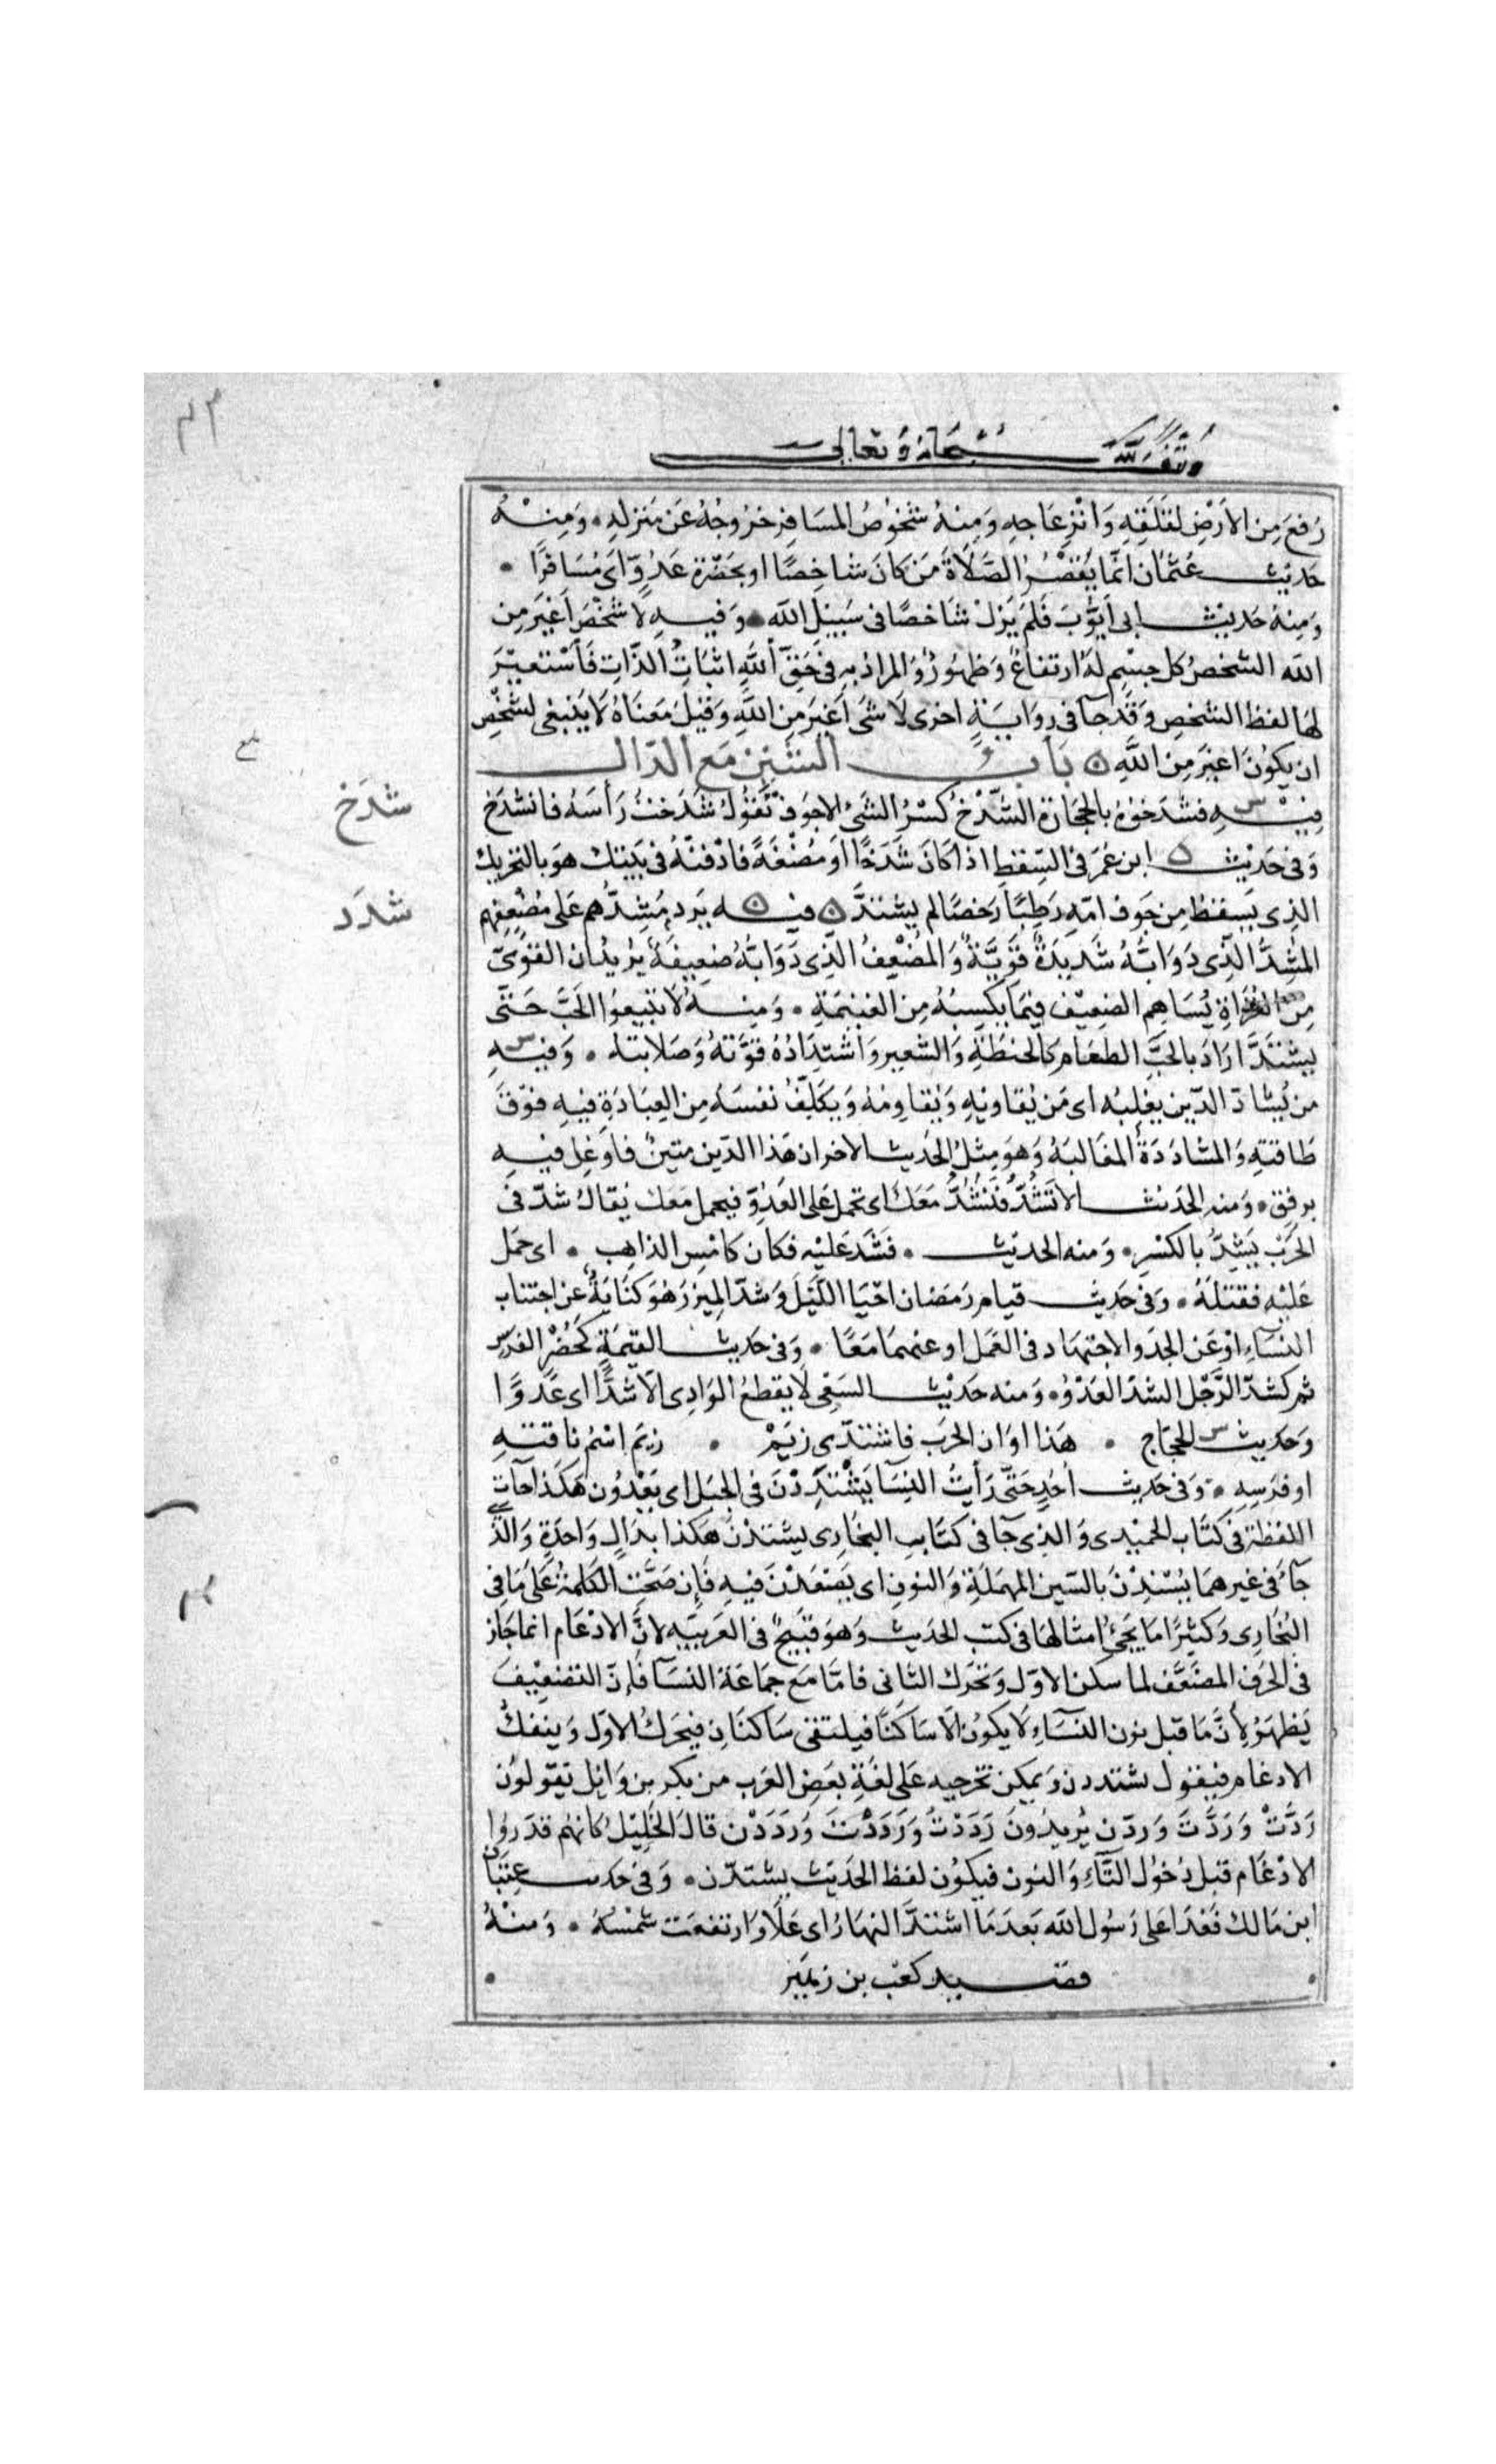 وقف لله سبحانه وتعالى
رُفعَ مِن الأَرْضِ لقَلَقِهِ وَانْزِعَاجِهِ وَمِنْهُ شُخُوصُ المسَافِرِ خرُوجُهُ عَن مَنزِلهِ . وَمِنْهُ
حَدِيث عُثمَان انّما يَقْصُرُ الصَّلَاةَ مَن كَانَ شاخِصًا او بحَضْرَة عَدُوٍّ اَى مُسَافِرًا .
وَمِنهُ حَديث ابى أيّوُبَ فَلَم يَزَلْ شَاخصًا فى سَبيْل الله . وَفيهِ لَا شَخْصَ أغْيَرَ مِن
الله الشخصُ كل جِسْمٍ لهُ ارتفاعٌ وَظهُورٌ وَالمرادُ بِهِ فى حَقِّ اللهِ اثبَاتُ الذَّاتِ فَأسْتعيْرَ
لهَا لفظ الشخصِ وَقَد جآ فى روَايَةٍ اخرى لَا شَى أغيَرَ مِن اللهِ وَقيْلَ مَعنَاهُ لَا يَنبغى لشخْصٍ
ان يكوُنَ اغيَرَ مِن اللهِ ۞ بَابُ الشّين مَع الدّال
شدَخ
فيْهِ فشَدَخوُهُ بالحجَارَة الشّدْخُ كَسْرُ الشئ الاجوَف تَقوُلُ شَدَختُ رَأسَهُ فانشدَخَ
وَفى حَدْيث ابن عُمَرَ فى السِّقطِ اذا كَانَ شَدَخًا اَو مُضْغَةً فادْفنْهُ فى بَيتِك هوَ بالتحْريك
شدَد
الذِى يَسقطُ مِن جَوف امّهِ رَطبًا رَخصًا لم يشتدَّ ۞ فيه يَرد مُشِدُّهُم عَلى مُضْعِفِهم
المُشِدُّ الذِى دَوَابُّهُ شَديدَةٌ قَوِيَّةٌ وَالمُضْعِفُ الَّذِى دَوَابُّهُ ضعِيفَةٌ يُريْدُ ان القَوِىّ
مِن الغُزاةِ يُسَاهِم الضعِيْف فيمَا يكسِبُهُ مِن الغنيمَةِ . وَمِنهُ لَا تَبيعوُا الحَبَّ حَتَّى
يشتَدَّ ارَادَ بالحَبِّ الطعَامَ كَالحِنطَةِ وَالشّعيرِ وَاشتِدَادُهُ قوَّتهُ وَصَلابته . وَفيهِ
من يُشادّ الدّين يغلبُه اى مَن يُقاويْهِ وَيُقاوِمُهُ وَيُكَلّفُ نفسَهُ مِن العِبَادَةِ فيهِ فوَقَ
طَاقتِهِ وَالمشَادَدَةُ المغَالبَةُ وَهوَ مِثلُ الحَديث الاخر ان هَذا الدّين متينٌ فاوغِل فيهِ
برفقٍ . وَمنه الحَديث الا تَشُدُّ فَنَشُدُّ مَعَكَ اى تحمل عَلى العَدُوّ فيحمل مَعك يُقالُ شدّ فى
الحَرْب يَشِدُّ بالكسْرِ . وَمنه الحديث . فشَدّ عَليْه فكان كامْسِ الذاهِب . اى حَمَل
عَليْه فقتلَهُ . وَفى حَديث قيام رَمَضان احْيَا اللّيْلَ وَشدّ المِيزرَ هُوَ كنَايَةٌ عن اجتناب
النسَاءِ اوْ عَن الجدّ والاجتهَاد فى العَمَل او عنهمَا مَعًا . وَفى حَديث القيمَةِ كَحُضْرِ الفرَس
ثم كَشدّ الرَّجُل الشدّ العَدْوُ . وَمنه حَديْث السَعْى لَا يقطعُ الوَادِى الّا شدًّا اى عَدْوًا
وَحَديث الحجّاج . هَذا اوَان الحَرَب فاشتدّى زِيَمْ . زِيَم اسْمُ ناقتهِ
او فرَسِهِ . وَفى حَديث اُحُدٍ حَتَّى رَأيتُ النِسَا يَشْتَدِدْنَ فى الجبَل اى يَعْدُون هَكذا جآت
اللفظة فى كتَاب الحميْدى وَالذِى جآ فى كتَابِ البخَارِى يشتدْن هَكذا بدَالٍ وَاحدَةٍ وَالّذ
جآءَ فى غيرهمَا يُسْندْنَ بالسّين المهمَلَةِ وَالنونِ اى يَصَعدْنَ فيهِ فَإن صَحَّتِ الكَلمةُ عَلى مَا فى
البُخَارِى وَكثيْرًا مَا يَجئُ امثالهَا فى كتب الحَديث وَهوَ قبيْحٌ فى العَربيّه لانَّ الادْغَام انما جَاز
فى الحَرف المضَعَّف لما سكن الاوّل وَتحَرك الثانى فامّا مَع جمَاعَة النسَآ فَإنّ التضعِيْفَ
يَظهَرُ لِأنَّ مَا قبل نون النسَآءِ لَا يكوُن الَا سَاكنًا فيلتقى سَاكنَانِ فيحَركُ الاوَل وَينفكّ
الادغام فيقول يشتددن وَيمكن تخريجه عَلى لغَةِ بَعضِ العَرب من بكرِ بن وَائِل يَقولوُن
رَدَّتْ وَرَدَّتَ وَردّن يُريدُونَ رَدَدْتُ وَرَدَدْتَ وَرَدَدْن قالَ الخليْلُ كانهُم قدّرُوا
الادْغَام قبل دُخوُل التَّآءِ وَالنون فيكوُن لفظ الحَديث يشتدّن . وَفى حَديث عِتبَان
ابن مَالك فَغدَا عَلى رَسُول الله بَعد مَا اشتدَّ النهَارُ اى عَلَا وَارتفعَت شمْسُهُ . وَمنْهُ
قصيد كعْب بن زهَيْر